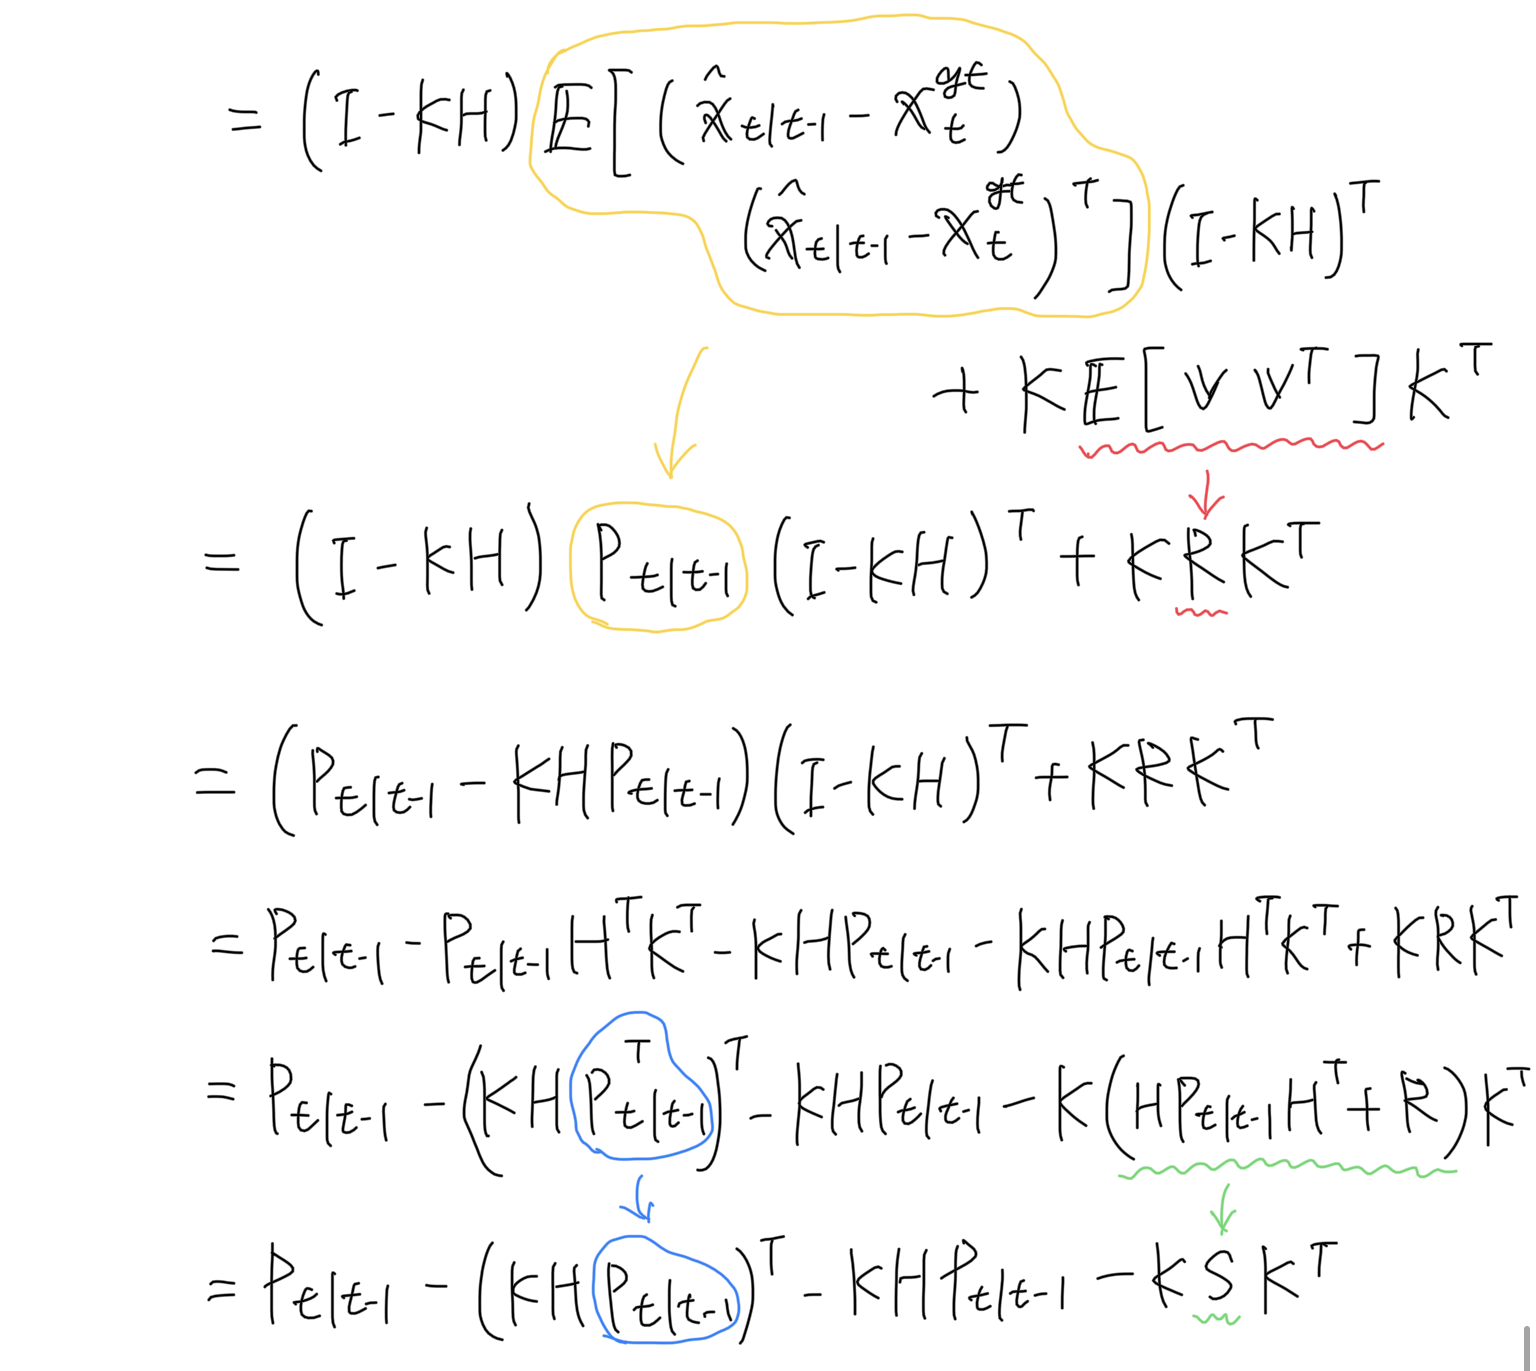 = (I - KH) E[ (x̂_{t|t-1} - x_t^{gt})
(x̂_{t|t-1} - x_t^{gt})^T ] (I - KH)^T
+ K E[ v v^T ] K^T
= (I - KH) P_{t|t-1} (I - KH)^T + K R K^T
= (P_{t|t-1} - KHP_{t|t-1}) (I - KH)^T + KRK^T
= P_{t|t-1} - P_{t|t-1} H^T K^T - KHP_{t|t-1} - KHP_{t|t-1} H^T K^T + KRK^T
= P_{t|t-1} - (KHP^T_{t|t-1})^T - KHP_{t|t-1} - K(HP_{t|t-1} H^T + R)K^T
= P_{t|t-1} - (KHP_{t|t-1})^T - KHP_{t|t-1} - KSK^T